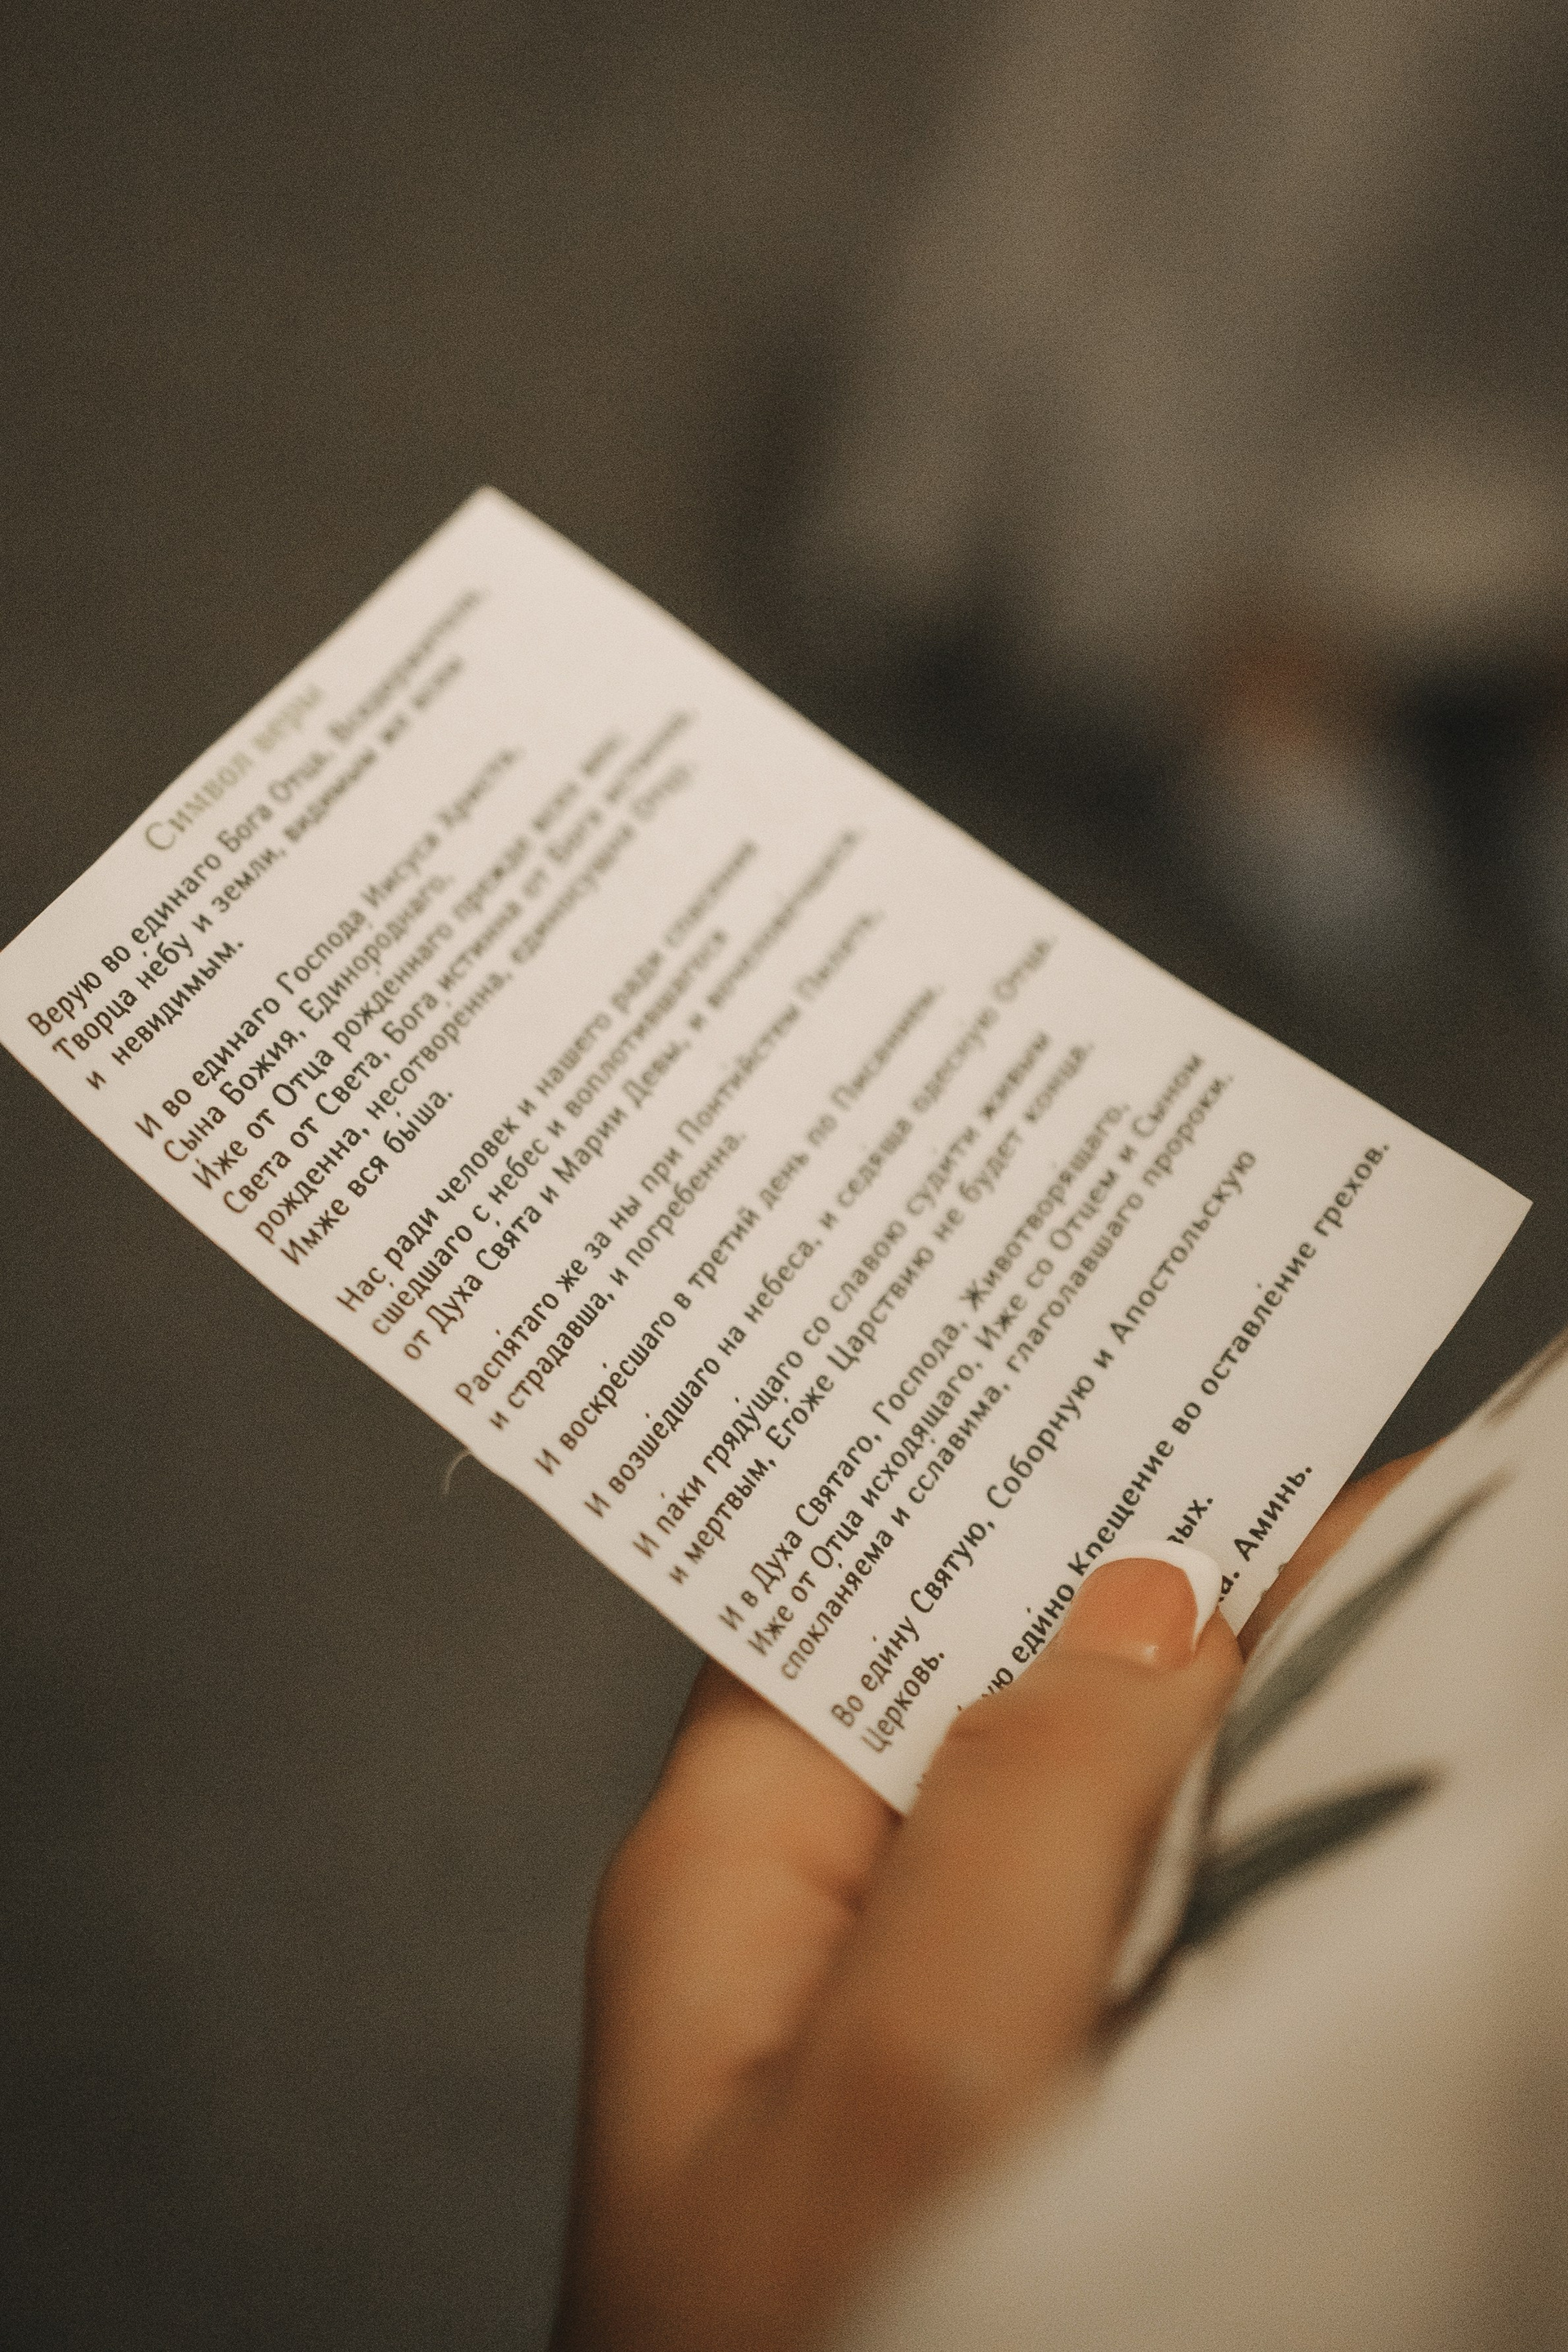 Символ веры
Верую во единаго Бога Отца, Вседержителя,
Творца не́бу и земли, видимым же всем
и невидимым.
И во единаго Господа Иисуса Христа,
Сына Божия, Единоро́днаго,
И́же от Отца рожде́ннаго прежде всех век;
Света от Света, Бога истинна от Бога истинна,
рожденна, несотворе́нна, единосущна Отцу,
Имже вся бы́ша.
Нас ради человек и нашего ради спасения
сше́дшаго с небес и воплоти́вшагося
от Духа Свя́та и Марии Девы, и вочелове́чшася.
Распя́таго же за ны при Понти́йстем Пилате,
и страда́вша, и погребенна.
И воскре́сшаго в третий день по Писанием.
И возше́дшаго на небеса, и седя́ща одесную Отца.
И па́ки гряду́щаго со славою суди́ти живым
и мертвым, Его́же Царствию не будет конца.
И в Духа Святаго, Господа, Животворящаго,
Иже от Отца исходя́щаго, Иже со Отцем и Сыном
спокланя́ема и ссла́вима, глаголавшаго пророки.
Во еди́ну Святую, Соборную и Апостольскую
Церковь.
ую еди́но Крещение во оставле́ние грехов.
вых.
ка. Аминь.